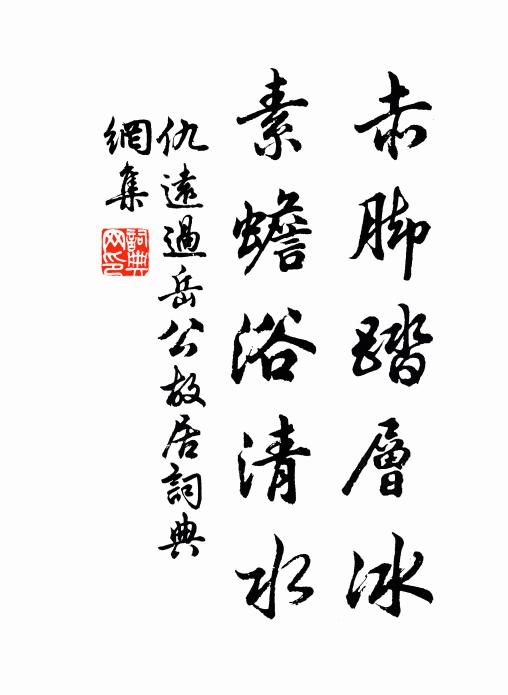 赤脚踏層冰
素蟾浴清水
仇遠過岳公故居詞典
網集
詞典
网印